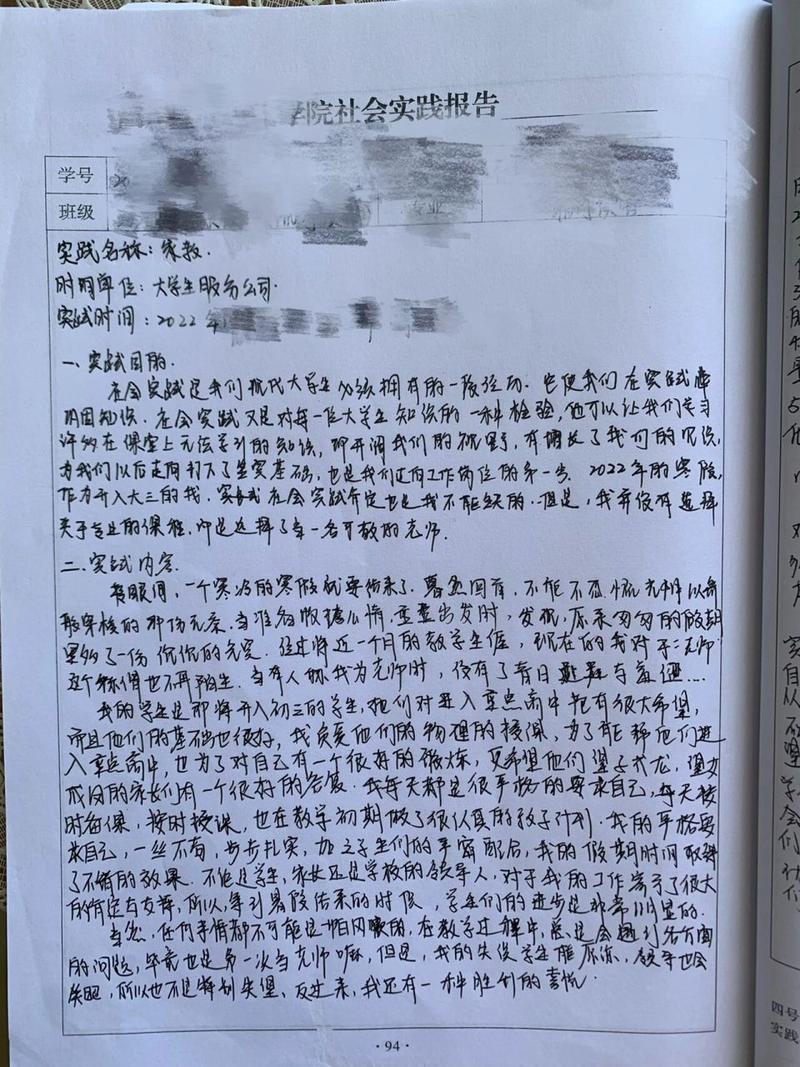 学院社会实践报告
学号
班级 专业
实践名称：家教.
时间单位：大学生服务公司.
实践时间：2022年
一、实践目的.
社会实践是我们现代大学生必须拥有的一段经历. 它使我们在实践中
巩固知识. 社会实践又是对每一位大学生知识的一种检验, 也可以让我们学习
许多在课堂上无法学到的知识, 即开阔我们的视野, 有增长了我们的见识,
为我们以后走向打下了坚实基础, 也是我们迈向工作岗位的第一步. 2022年的寒假,
作为升入大三的我. 社会实践肯定也是我不能缺的. 但是, 我并没有选择
关于专业的课程, 而是选择了当一名可敬的老师.
二. 实践内容.
转眼间, 一个寒冷的寒假就要结束了. 蓦然回首, 不能不感慨光阴
穿梭的那份无奈. 当准备收拾心情, 重整出发时, 发现, 原来匆匆的假期
里多了一份沉沉的充实. 经过将近一个月的教学生涯, 现在的我对于"老师"
这个称谓也不再陌生. 当有人称我为老师时, 没有了昔日 与羞涩...
我的学生是即将升入初三的学生, 他们对进入重点高中抱有很大希望,
而且他们的基础也很好, 我负责他们的物理的授课, 为了能帮他们进
入重点高中, 也为了对自己有一个很好的锻炼, 更希望他们望子成龙, 望女
成凤的家长们有一个很好的答复. 我每天都是很严格的要求自己, 每天按
时备课, 按时授课, 也在教学初期做了很认真的教学计划. 我的严格要
求自己, 一丝不苟, 步步扎实, 加之学生们的紧密配合, 我的假期时间取得
了不错的效果. 不论是学生, 家长还是学校的领导人, 对于我的工作寄予了很大
的肯定与支持, 所以, 等到暑假结束的时候, 学生们的进步是非常明显的.
当然, 任何事情都不可能是一帆风顺的, 在教学过程中, 总是会遇到各方面
的问题, 毕竟也是第一次当老师嘛, 但是, 我的失误学生能原谅, 领导也会
, 所以也不是特别失望、反过来, 我还有一种胜利的喜悦.
·94·
四号
实践